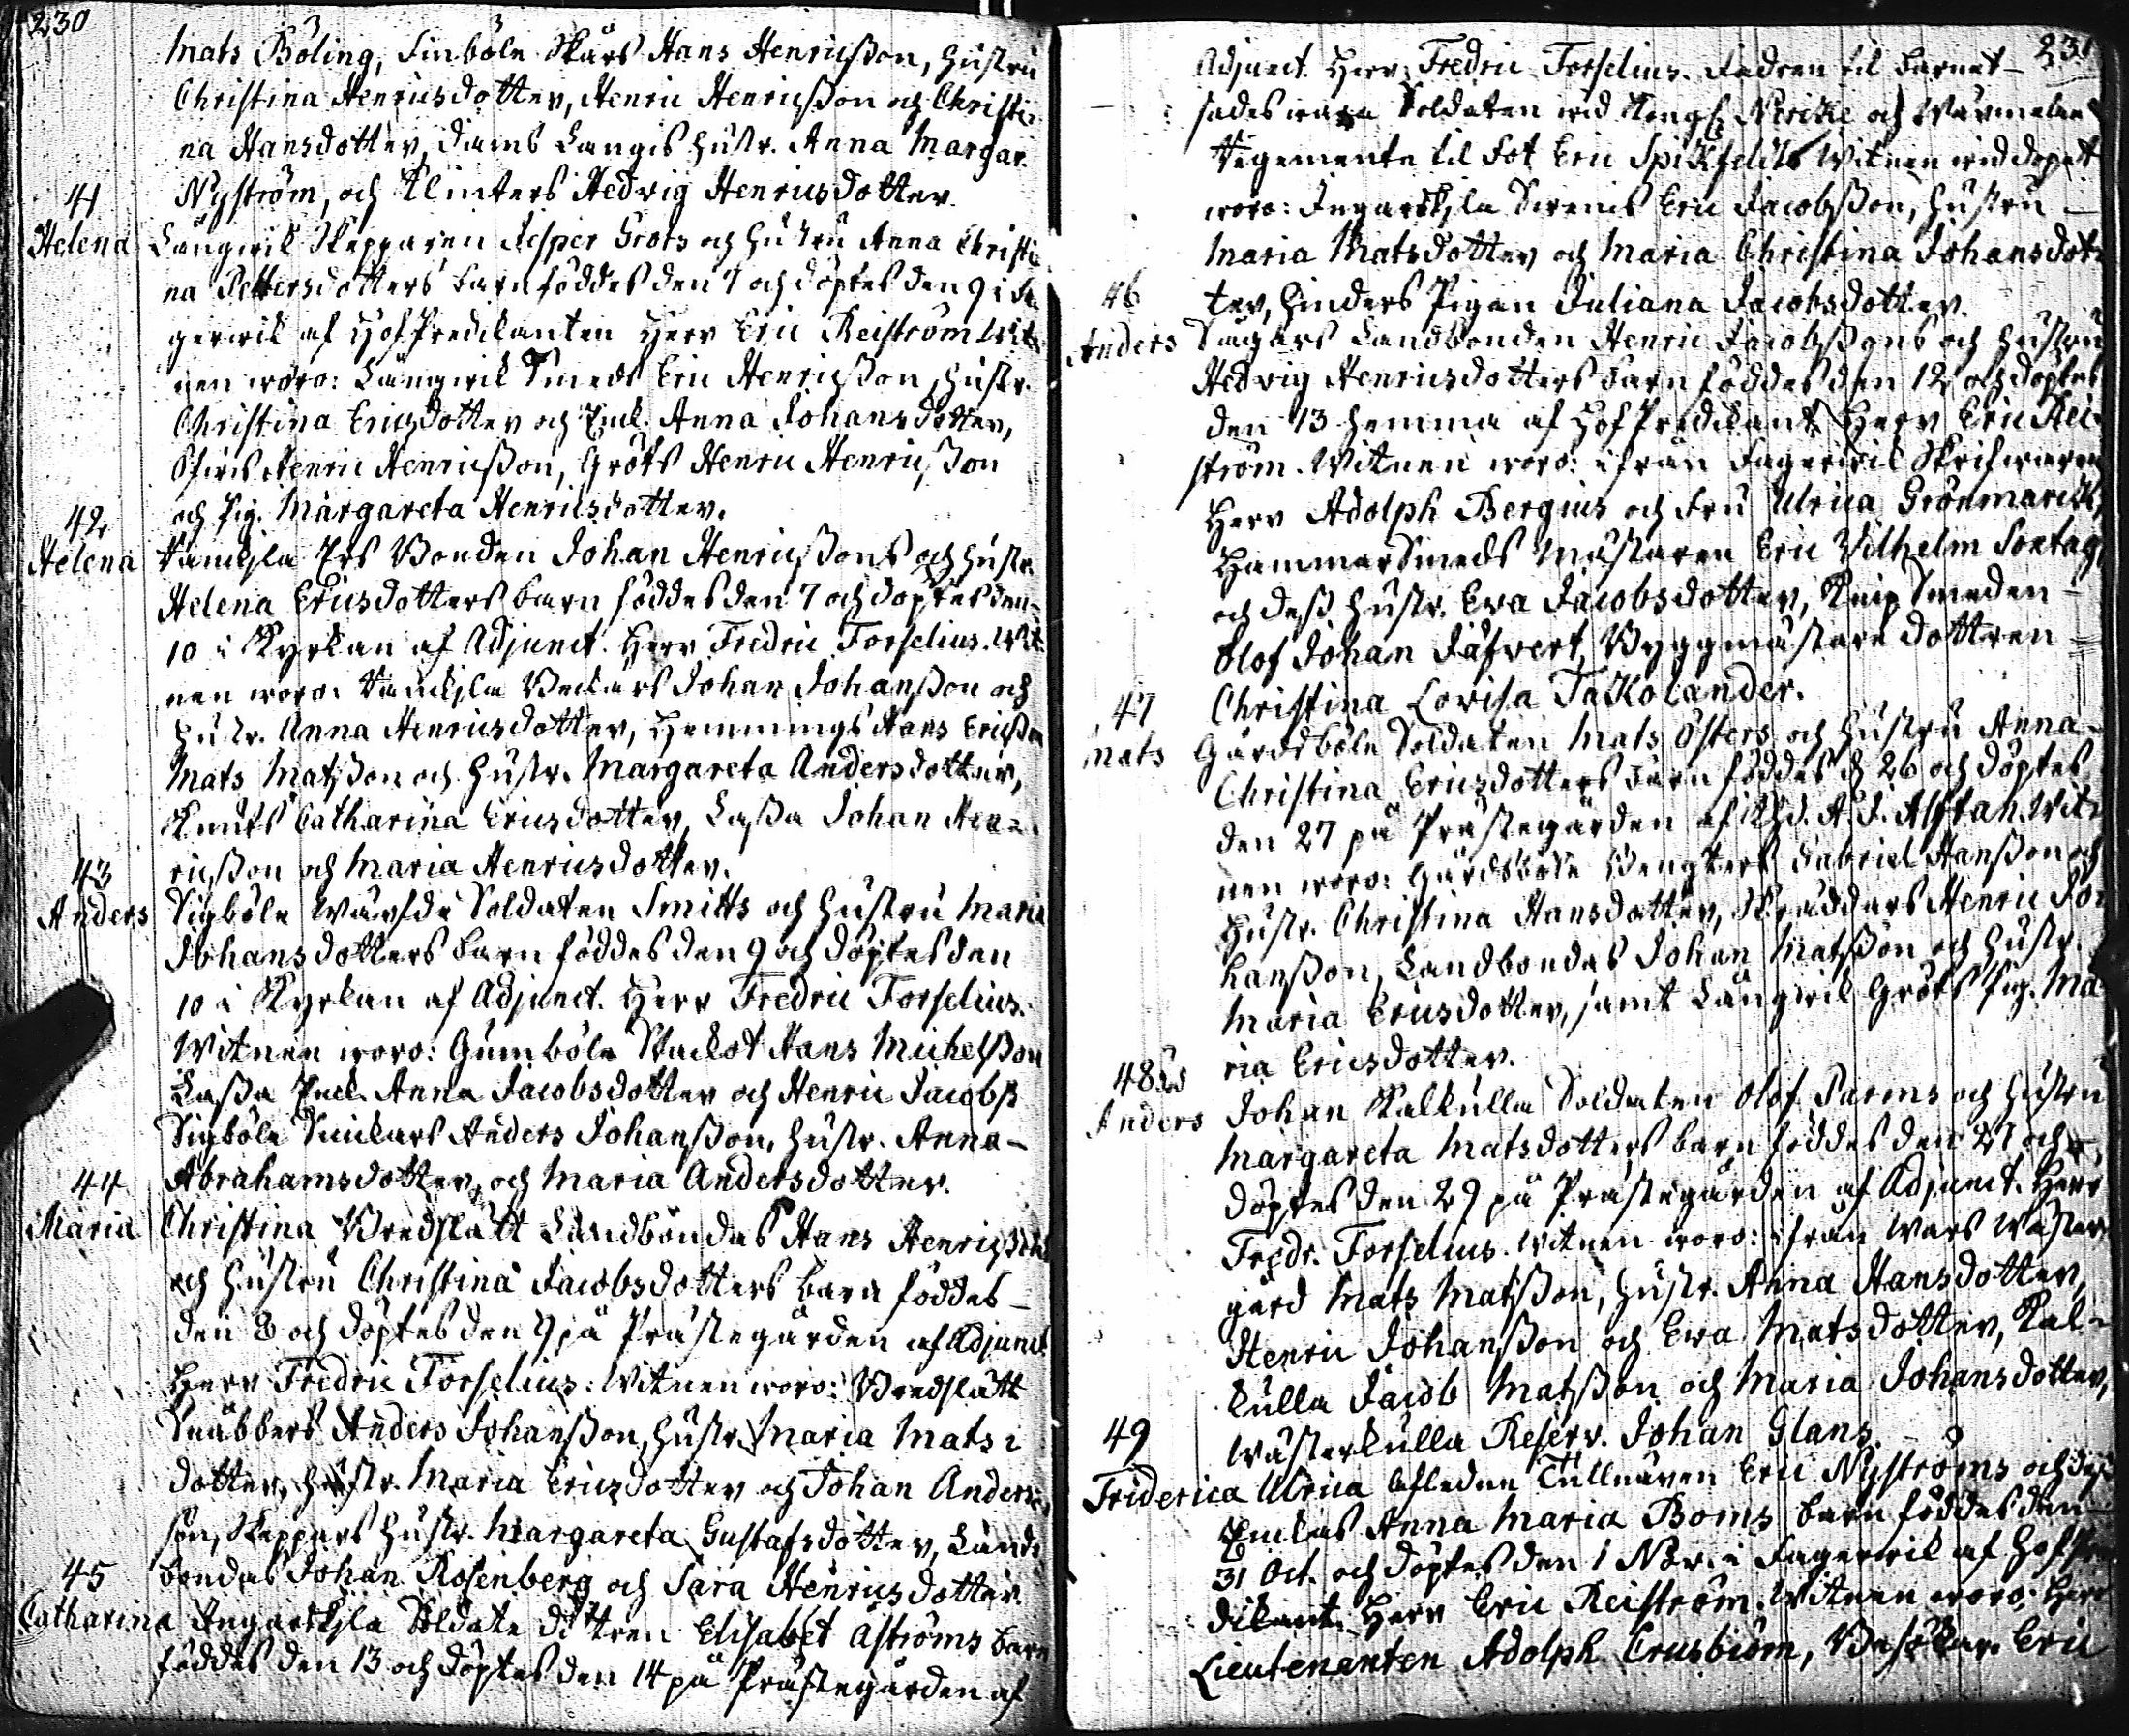 230
Mats Böling, Finböle Skārs Hans Henricßon, hustru
Christina Henricsdotter, Henric Henricßon och Christi-
na Hansdotter, Dams Langis hustr. Anna Margar.
Nyström, och Klinkers Hedvig Henricsdotter.
41
Helena Långwik Skepparen Jesper Grots och hustru Anna Christi-
na Pettersdotters barn föddes den 7 och döptes den 9 i Fa-
gerwik af Hof Predikanten Herr Eric Reiström Wit-
nen woro: Långwik Smeds Eric Henricßon, hustr.
Christina Ericsdotter och Enk. Anna Johansdotter,
Henric Henricßon, Gröts Henric Henricßon
och Pig. Margareta Henricsdotter.
42
Helena Bonden Johan Henricßons och hustr.
Helena Ericsdotters barn föddes den 7 och döptes den
10 i Kyrkan af Adjunct. Herr Fredric Forselius. Wit-
nen woro: Johan Johanßon och
hustr. Anna Henricsdotter, Hemmings Hans Ericßon
Mats Matsßon och hustr. Margareta Andersdotter,
Knuts Catharina Ericsdotter, Laßa Johan Hen-
ricßon och Maria Henricsdotter.
43
Anders Sigböle Wärfde Soldaten Smitts och hustru Maria
Johansdotters barn föddes den 9 och döptes den
10 i Kyrkan af Adjunct. Herr Fredric Forselius.
Witnen woro: Gumböle Stackot Hans Michelßon
Laßa Enk. Anna Jacobsdotter och Henric Jacobß
Sigböle Anders Johanßon, hustr. Anna
Abrahamsdotter, och Maria Andersdotter.
44
Maria Christina Bredslätt Landbondas Hans Henricßons
och hustru Christina Jacobsdotters barn föddes
den 8 och döptes den 9 på Prästegården af Adjunct
Herr Fredric Forselius: Witnen woro: Bredslätt
Snäbbers Anders Johanßon, hustr. Maria Mats-
dotter, hustr. Maria Ericsdotter och Johan Anders-
son, Skeppars hustr. Margareta Gustafsdotter, Land-
bondas Johan Rosenberg och Sara Henricsdotter.
45
Catharina Ingarskila Soldate dottren Elisabet Åströms barn
föddes den 13 och döptes den 14 på Prästegården af
231
Adjunct. Herr Fredric Forselius. Fadren til barnet
sades wara Soldaten wid Kongl. Nericke och Wärmelands
Regemente til Fot Eric Spikfeldt. Witnen wid dopet
woro: Ingarskila Eric Jacobsßon, hustru
Maria Matsdotter och Maria Christina Johansdot-
ter, Finders Pigan Juliana Jacobsdotter.
46
Anders Landbonden Henric Jacobsßons och hustru
Hedvig Henricsdotters barn föddes den 12 och döptes
den 13 hemma af Hof Predikant. Herr Eric Rei-
ström. Witnen woro: ifrån Fagerwik Skrifwaren
Herr Adolph Bergius och Fru Ulrica Grönmarck,
HammarSmeds Mästaren Eric Vilhelm Sontag
och deß hustr. Eva Jacobsdotter, Knip Smeden
Olof Johan Jäfvert, Byggmästare dottren
Christina Lovisa Takolander.
47
Mats Gårdsböle Soldaten Mats Österz och hustru Anna
Christina Ericsdotters barn föddes d 26 och döptes
den 27 på Prästegården af Khd. A. J. Alftan. Wit-
nen woro: Gårdsböle Gabriel Hanßon och
hustr. Christina Hansdotter, Skräddars Henric Jo-
hanßon, Landbondas Johan Matsßon och hustr.
Maria Ericsdotter, samt Långwik Gröts Pig. Ma-
ria Ericsdotter.
48
Anders Johan Kalkulla Soldaten Olof Parms och hustru
Margareta Matsdotters barn föddes den 27 och
döptes den 29 på Prästegården af Adjunct. Herr
Fredr. Forselius. Witnen woro: ifrån Wars Wäster-
gård Mats Matsßon, hustr. Anna Hansdotter,
Henric Johanßon och Eva Matsdotter, Kal-
kulla Jacob Matsßon och Maria Johansdotter,
Wästerkulla Reserv. Johan Glans.
49
Friderica Ulrica Afledne Tullnären Eric Nyströms och deß
Enkas Anna Maria Boms barn föddes den
31 Oct. och döptes den 1 Nov. i Fagerwik af Hof Pre-
dikant. Herr Eric Reiström. Witnen woro: Herr
Lieutenanten Adolph Crusbiörn, Besökar. Eric